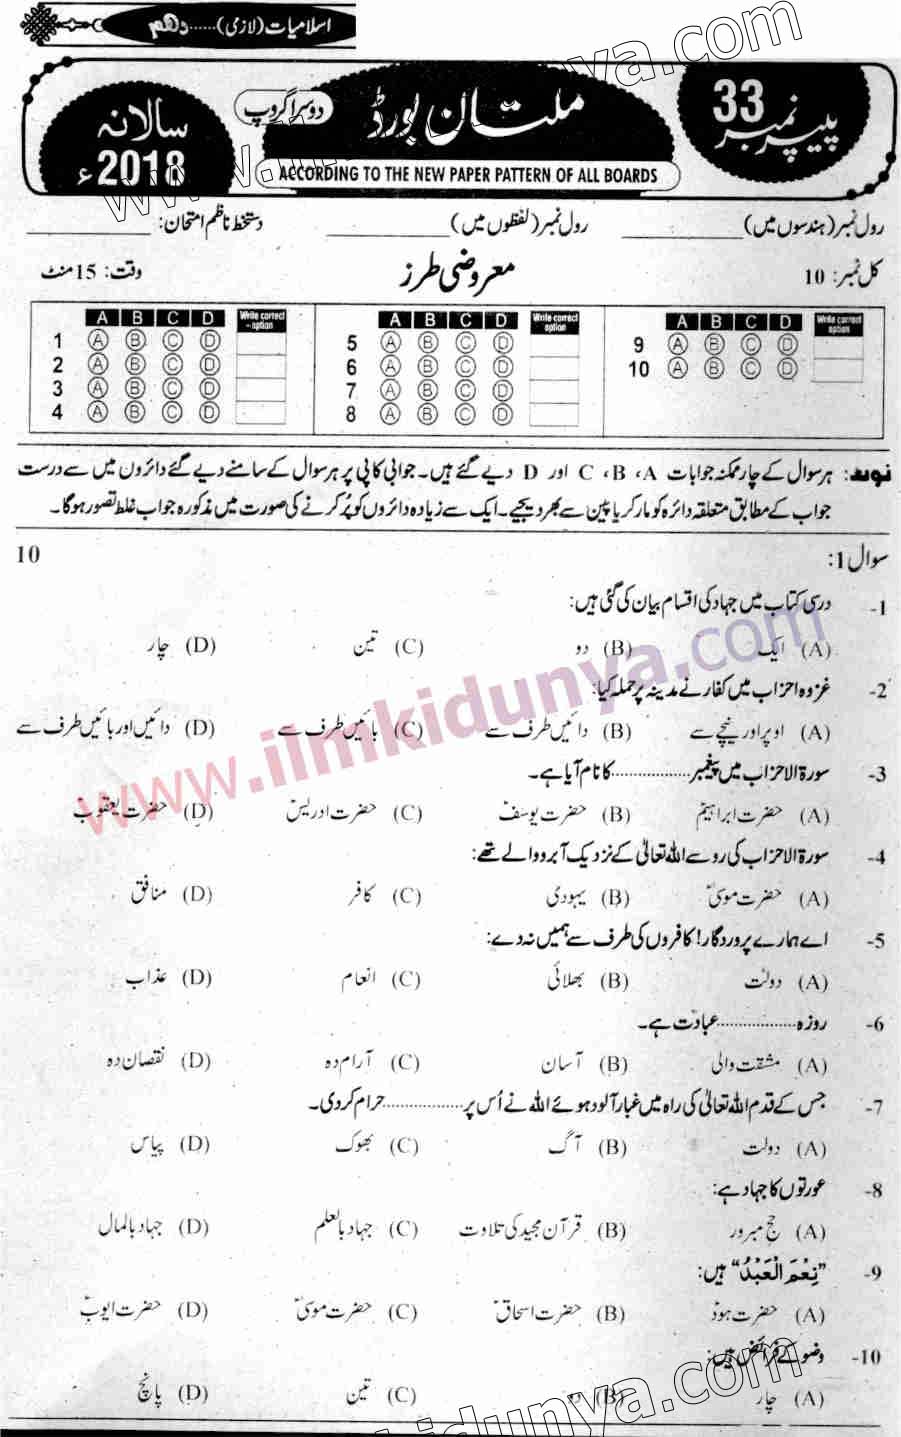 اسلامیات (لازمی)......دهم
پیپر نمبر 33
ملتان بورڈ
دوسرا گروپ
سالانہ 2018ء
ACCORDING TO THE NEW PAPER PATTERN OF ALL BOARDS
رول نمبر (ہندسوں میں) ____________ رول نمبر (لفظوں میں) ____________ دستخط ناظم امتحان: ____________
کل نمبر: 10 معروضی طرز وقت: 15 منٹ
A B C D Write correct option A B C D Write correct option A B C D Write correct option
1 A B C D 5 A B C D 9 A B C D
2 A B C D 6 A B C D 10 A B C D
3 A B C D 7 A B C D
4 A B C D 8 A B C D
نوٹ: ہر سوال کے چار ممکنہ جوابات A، B، C اور D دیے گئے ہیں۔ جوابی کاپی پر ہر سوال کے سامنے دیے گئے دائروں میں سے درست
جواب کے مطابق متعلقہ دائرہ کو مارکر یا پین سے بھر دیجیے۔ ایک سے زیادہ دائروں کو پُر کرنے کی صورت میں مذکورہ جواب غلط تصور ہوگا۔
سوال 1: 10
1- درسی کتاب میں جہاد کی اقسام بیان کی گئی ہیں:
(A) ایک (B) دو (C) تین (D) چار
2- غزوہ احزاب میں کفار نے مدینہ پر حملہ کیا:
(A) اوپر اور نیچے سے (B) دائیں طرف سے (C) بائیں طرف سے (D) دائیں اور بائیں طرف سے
3- سورۃ الاحزاب میں پیغمبر.................کا نام آیا ہے۔
(A) حضرت ابراہیمؑ (B) حضرت یوسفؑ (C) حضرت ادریسؑ (D) حضرت یعقوبؑ
4- سورۃ الاحزاب کی رو سے اللہ تعالیٰ کے نزدیک آبرو والے تھے:
(A) حضرت موسیٰؑ (B) یہودی (C) کافر (D) منافق
5- اے ہمارے پروردگار! کافروں کی طرف سے ہمیں نہ دے:
(A) دولت (B) بھلائی (C) انعام (D) عذاب
6- روزہ..................عبادت ہے۔
(A) مشقت والی (B) آسان (C) آرام دہ (D) نقصان دہ
7- جس کے قدم اللہ تعالیٰ کی راہ میں غبار آلود ہوئے اللہ نے اُس پر..................حرام کر دی۔
(A) دولت (B) آگ (C) بھوک (D) پیاس
8- عورتوں کا جہاد ہے:
(A) حج مبرور (B) قرآن مجید کی تلاوت (C) جہاد بالعلم (D) جہاد بالمال
9- "نِعْمَ الْعَبْدُ" ہیں:
(A) حضرت ہودؑ (B) حضرت اسحاقؑ (C) حضرت موسیٰؑ (D) حضرت ایوبؑ
10- وضو کے فرائض ہیں:
(A) چار (B) دو (C) تین (D) پانچ
www.ilmkidunya.com